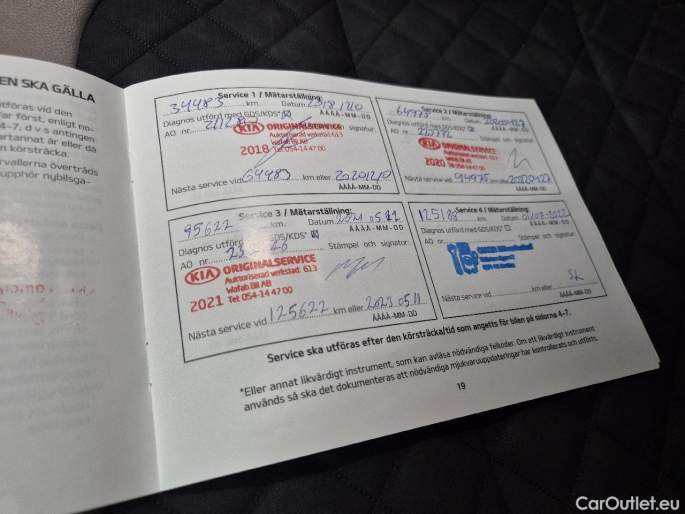 EN SKA GÄLLA
utföras vid den
ar först. enligt no-
4–7, d v s antingen
artannat år eller då
n körsträcka.
rvallerna överträds
upphör nybilsga-
Service 1 / Mätarställning:
34483 km Datum 2018 12 10
Diagnos utförd med GDS/KDS* ÅÅÅÅ-MM-DD
AO nr. signatur:
KIA ORIGINALSERVICE
Auktoriserad verkstad: 613
Wafab Bil AB
2018 Tel 054-14 47 00
Nästa service vid 64483 km eller 20201210
ÅÅÅÅ-MM-DD
Service 2 / Mätarställning:
64975 km Datum
Diagnos utförd med GDS/KDS* ÅÅÅÅ-MM-DD
AO nr. Stämpel och signatur:
KIA ORIGINALSERVICE
Auktoriserad verkstad: 613
Wafab Bil AB
2020 Tel 054-14 47 00
Nästa service vid 94975 km eller
ÅÅÅÅ-MM-DD
Service 3 / Mätarställning:
95622 km Datum 2021 05 11
Diagnos utförd GDS/KDS* ÅÅÅÅ-MM-DD
AO nr. Stämpel och signatur:
KIA ORIGINALSERVICE
Auktoriserad verkstad: 613
Wafab Bil AB
2021 Tel 054-14 47 00
Nästa service vid 125622 km eller 2023 05 11
ÅÅÅÅ-MM-DD
Service 4 / Mätarställning:
125188 km Datum 01/07-2022
Diagnos utförd med GDS/KDS* ÅÅÅÅ-MM-DD
AO nr. Stämpel och signatur:
SK
Nästa service vid km eller
ÅÅÅÅ-MM-DD
Service ska utföras efter den körsträcka/tid som angetts för bilen på sidorna 4–7.
*Eller annat likvärdigt instrument, som kan avläsa nödvändiga felkoder. Om ett likvärdigt instrument
används så ska det dokumenteras att nödvändiga mjukvaruuppdateringar har kontrollerats och utförts.
19
CarOutlet.eu